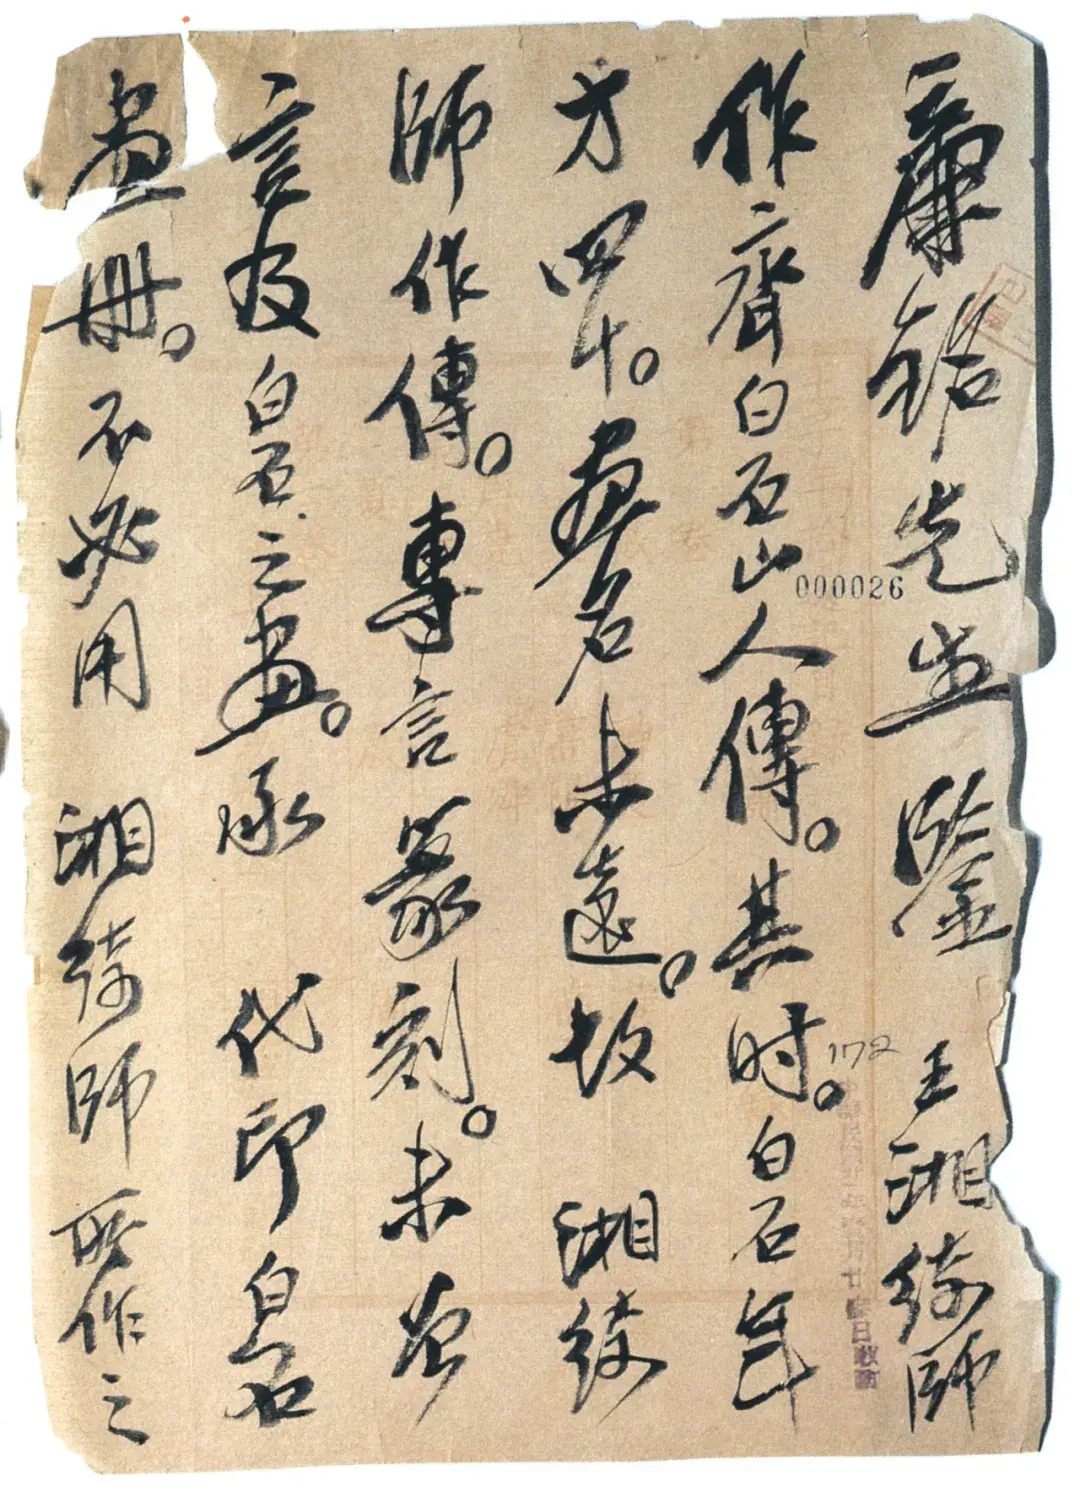 廉銘先生鑒 王湘綺師
作齊白石山人傳。其時。白石年
方四十。畫名未遠。故 湘綺
師作傳。專言篆刻。未曾
言及白石之畫。承 代印白石
畫冊。不必用 湘綺師所作之
000026
172